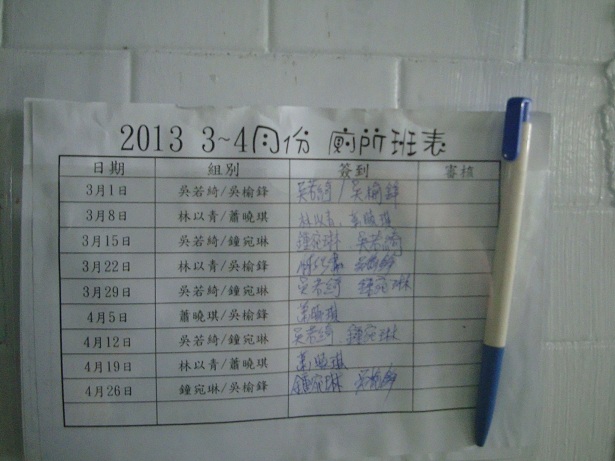 2013 3~4月份 廁所班表
日期 組別 簽到 審核
3月1日 吳若綺/吳榆鋒 吳若綺 / 吳榆鋒
3月8日 林以青/蕭曉琪 林以青
3月15日 吳若綺/鐘宛琳 鐘宛琳 吳若綺
3月22日 林以青/吳榆鋒
3月29日 吳若綺/鐘宛琳 吳若綺 鐘宛琳
4月5日 蕭曉琪/吳榆鋒
4月12日 吳若綺/鐘宛琳 吳若綺 鐘宛琳
4月19日 林以青/蕭曉琪
4月26日 鐘宛琳/吳榆鋒 鐘宛琳